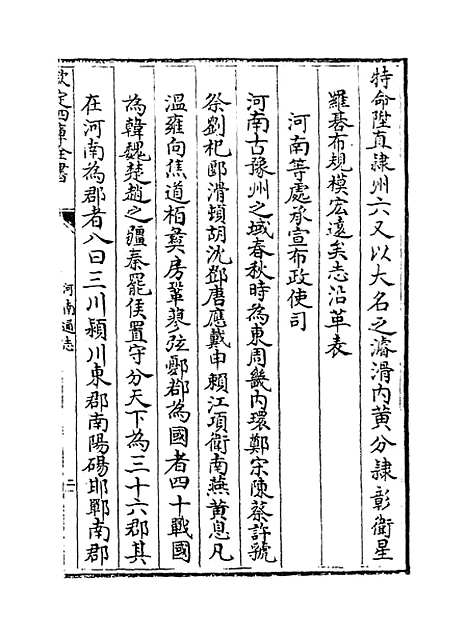 特命陞直隷州六又以大名之濬滑内黄分隷彰衛星
羅碁布規模宏逺矣志沿革表
河南等處承宣布政使司
河南古豫州之域春秋時為東周畿内環鄭宋陳蔡許虢
祭劉杞郾滑頓胡沈鄧唐應戴申賴江項衛南燕黄息凡
温雍向焦道栢㢲房鞏蓼弦鄾鄀為國者四十戰國
為韓魏楚趙之疆秦罷侯置守分天下為三十六郡其
在河南為郡者八曰三川潁川東郡南陽碭邯鄲南郡
欽定四庫全書
河南通志
二